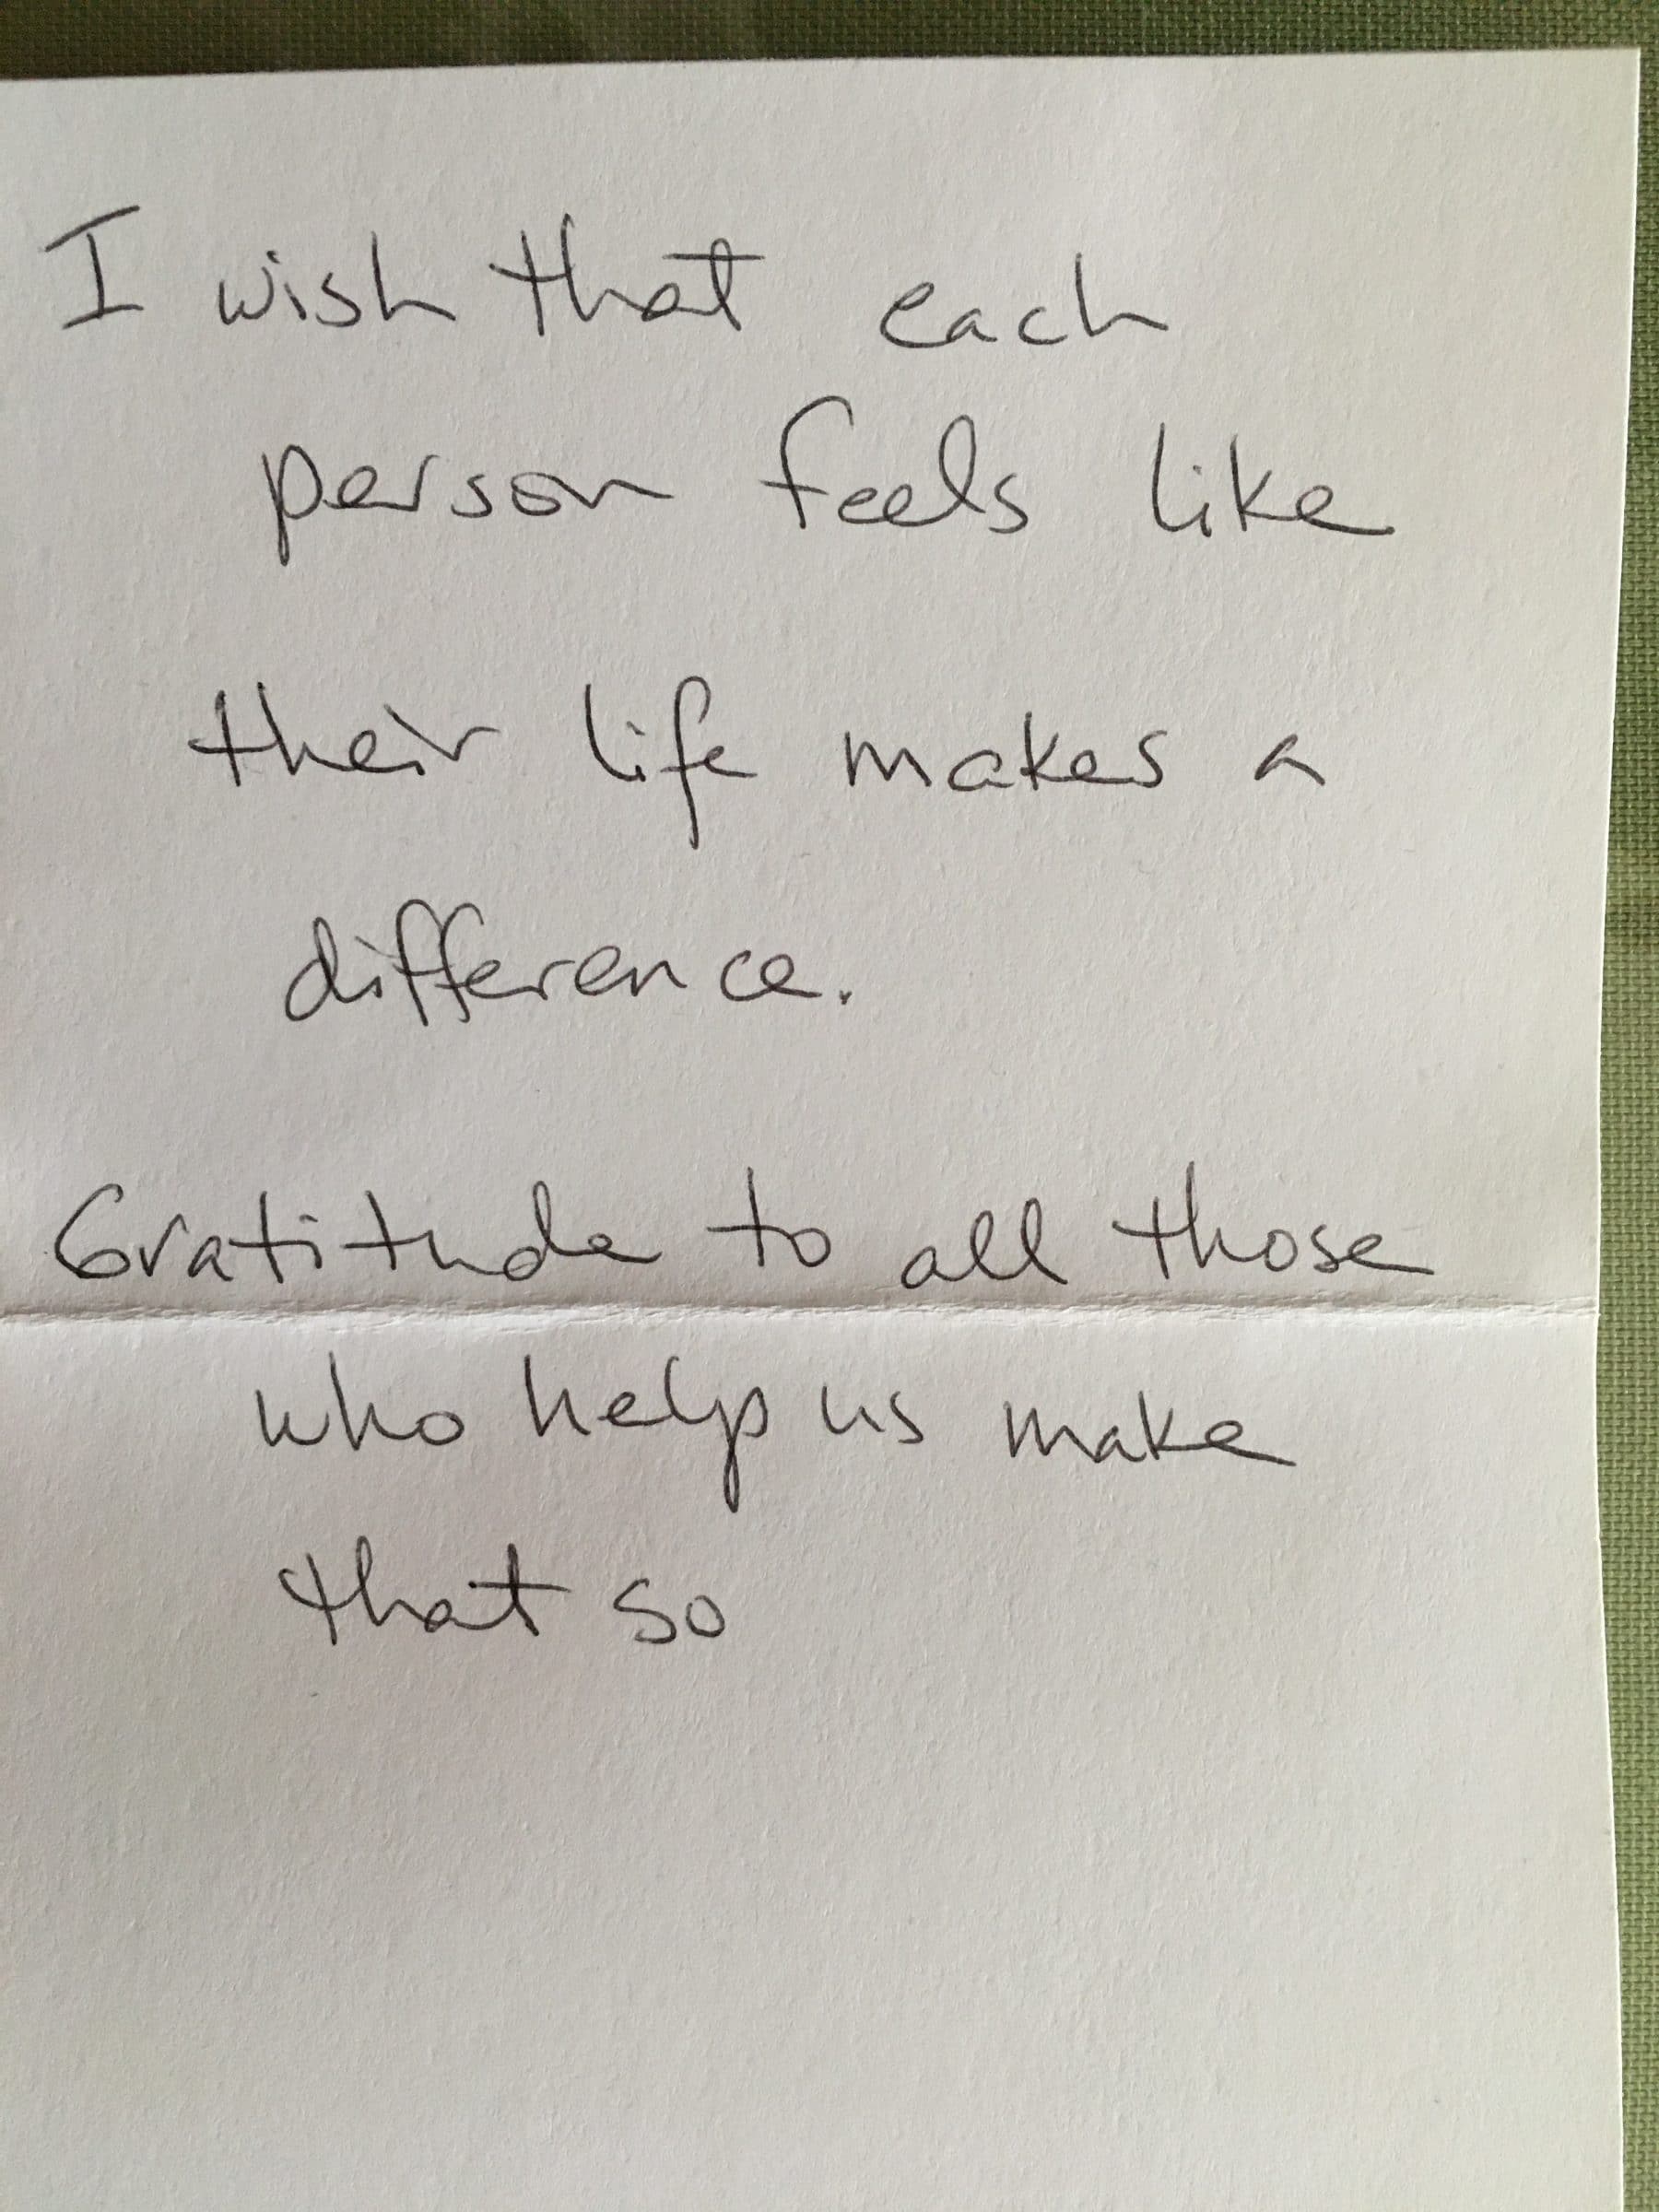 I wish that each
person feels like
their life makes a
difference.
Gratitude to all those
who help us make
that so